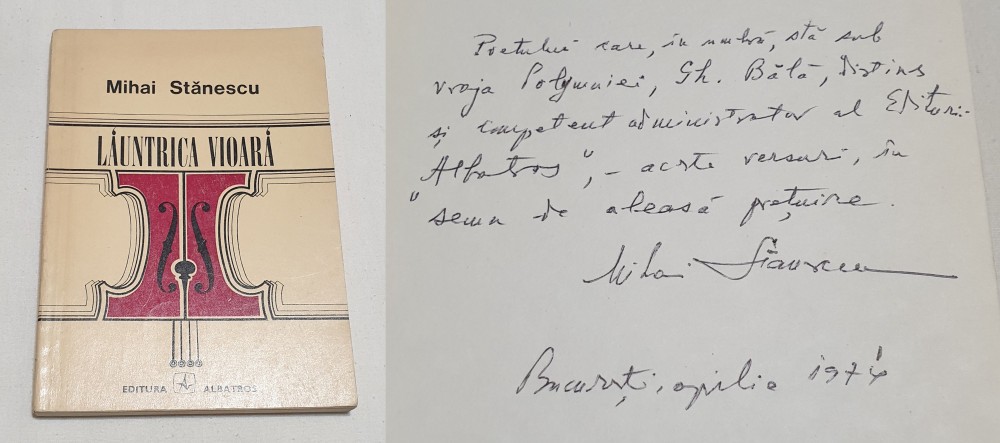 Mihai Stănescu
LĂUNTRICA VIOARĂ
EDITURA ALBATROS
Poetului care, în umbră, stă sub
vraja Polymniei, Gh. Bălă, distins
și competent administrator al Editurii
"Albatros", – aceste versuri, în
semn de aleasă prețuire.
Mihai Stănescu
București, aprilie 1974